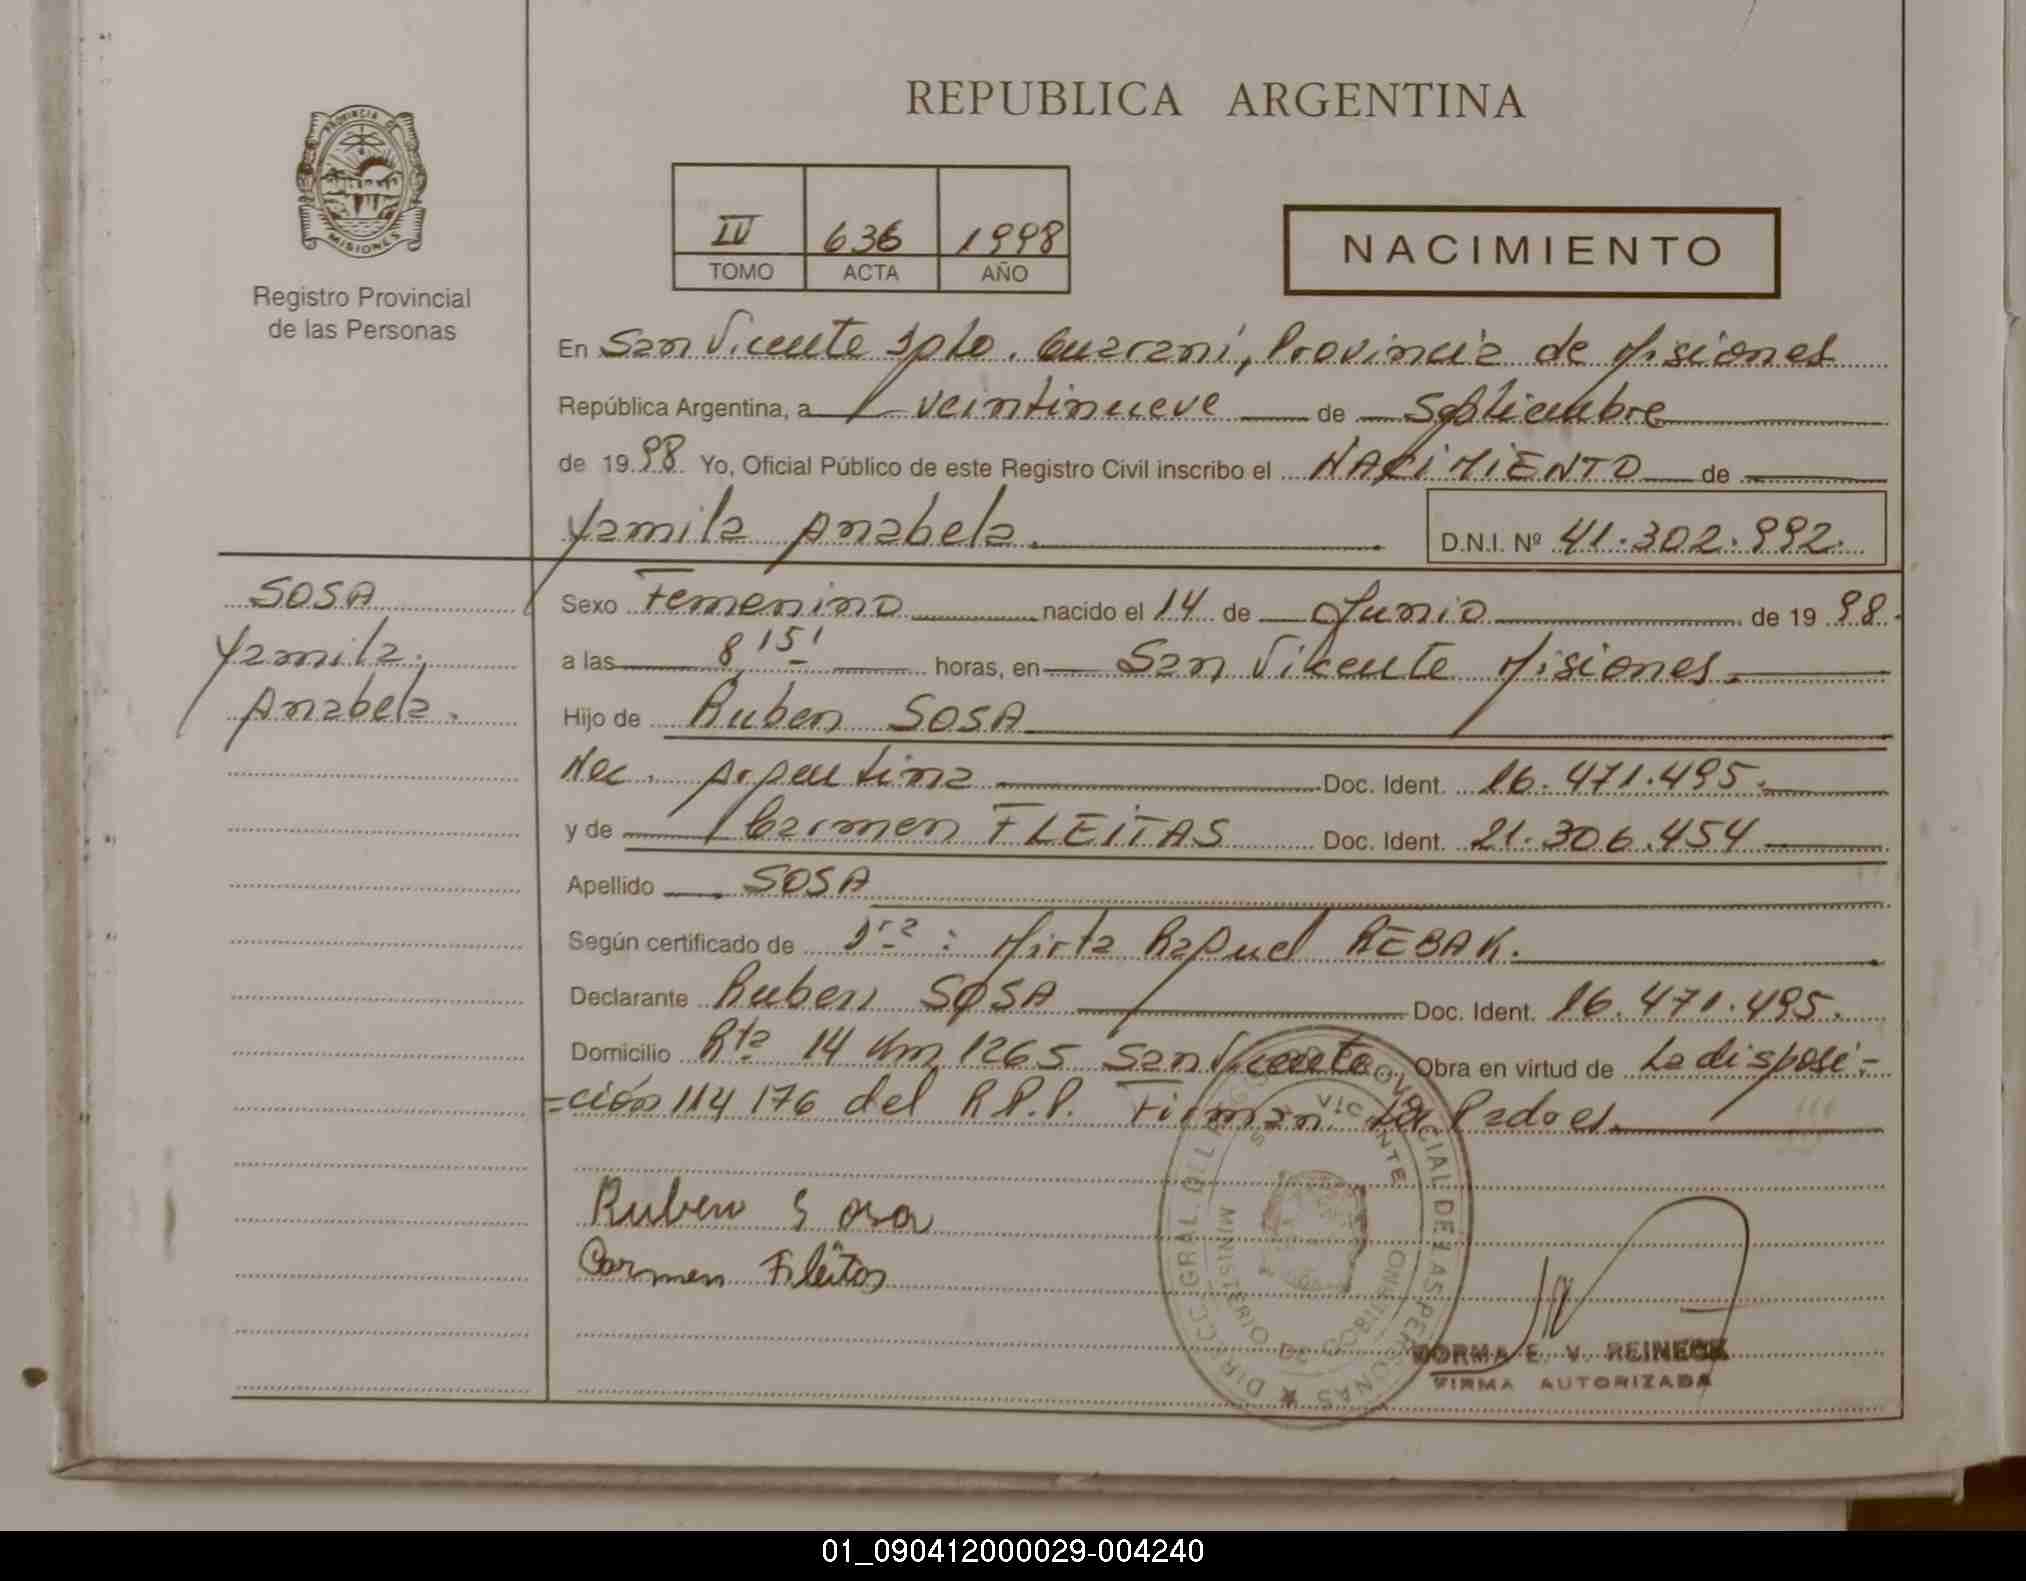 REPUBLICA ARGENTINA
PROVINCIA DE
MISIONES
Registro Provincial
de las Personas
IV 636 1998
TOMO ACTA AÑO
NACIMIENTO
En San Vicente Dpto. Guaraní, Provincia de Misiones
República Argentina, a veintinueve de Septiembre
de 1998 Yo, Oficial Público de este Registro Civil inscribo el NACIMIENTO de
Yamila Anabela. D.N.I. Nº 41.302.992.
SOSA
Yamila
Anabela.
Sexo Femenino nacido el 14 de Junio de 1998.
a las 8,15' horas, en San Vicente Misiones.
Hijo de Ruben SOSA
Nac. Argentina Doc. Ident. 16.471.495.
y de Carmen FLEITAS Doc. Ident. 21.306.454
Apellido SOSA
Según certificado de Dra: Mirta Raquel REBAK.
Declarante Ruben SOSA Doc. Ident. 16.471.495.
Domicilio Rta 14 Km 1265 San Vicente Obra en virtud de La disposi-
=ción 114176 del R.P.P. Firman los Padres.
Ruben Sosa
Carmen Fleitas
DIRECC. GRAL. DEL REGISTRO PROVINCIAL DE LAS PERSONAS
MINISTERIO DE GOBIERNO
SAN VICENTE
NORMA E. V. REINECK
FIRMA AUTORIZADA
01_090412000029-004240